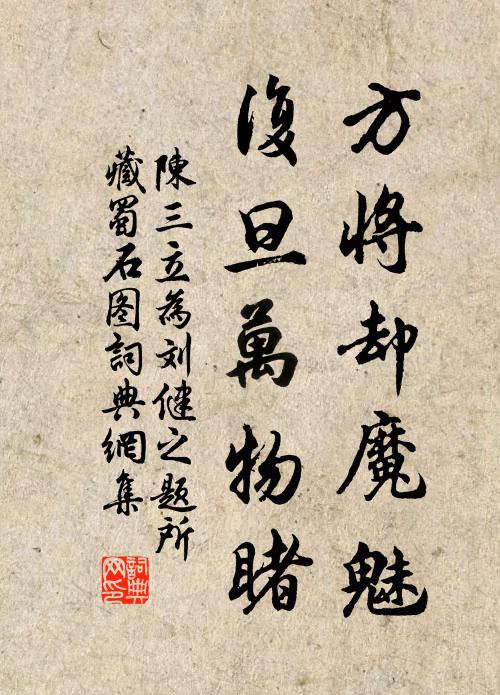 方將却魔魅
復旦萬物睹
陳三立為刘健之题所
藏蜀石图詞典網集
詞典
网印